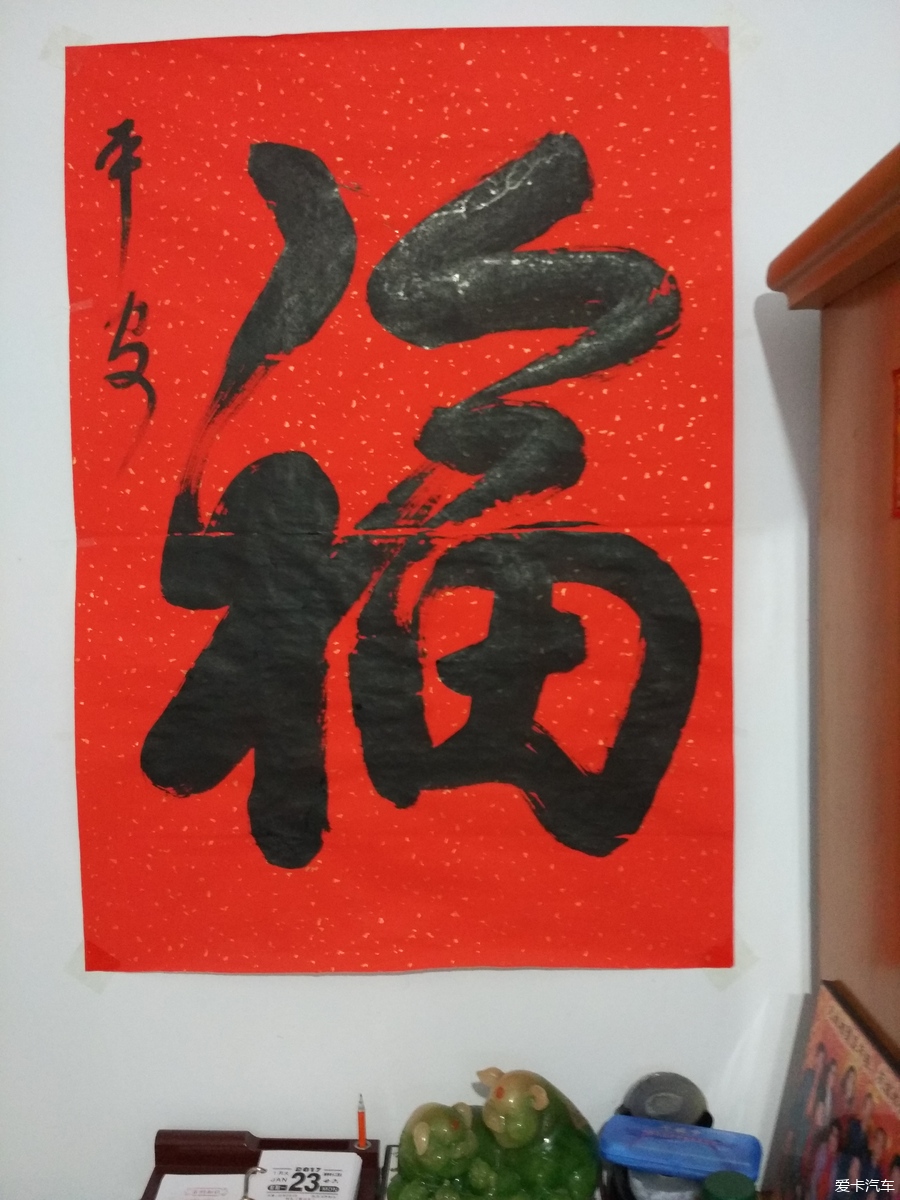 福
平安
2017
JAN
23
MON
爱卡汽车